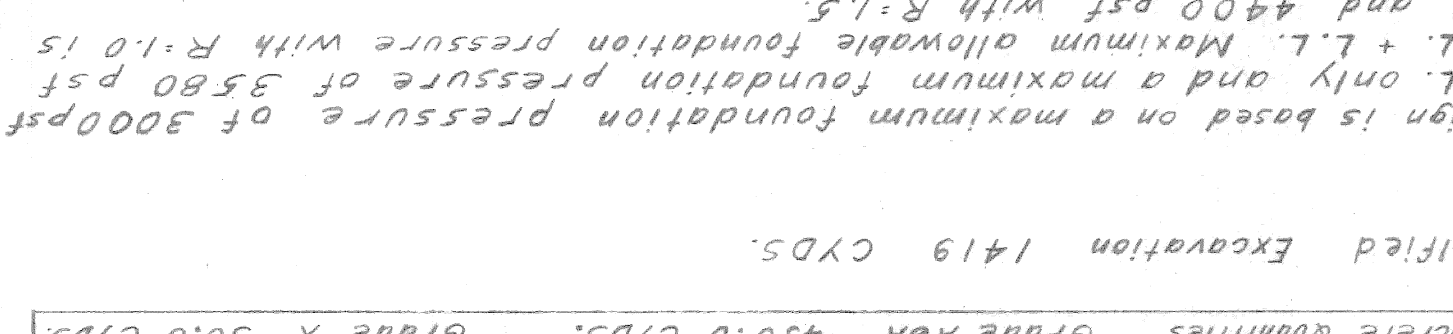 Quantities Grade Grade X
ified Excavation 1419 CYDS.
ign is based on a maximum foundation pressure of 3000psf
L. only and a maximum foundation pressure of 3580 psf
L. + L.L. Maximum allowable foundation pressure with R=1.0 is
and 4400 psf with R=1.5.